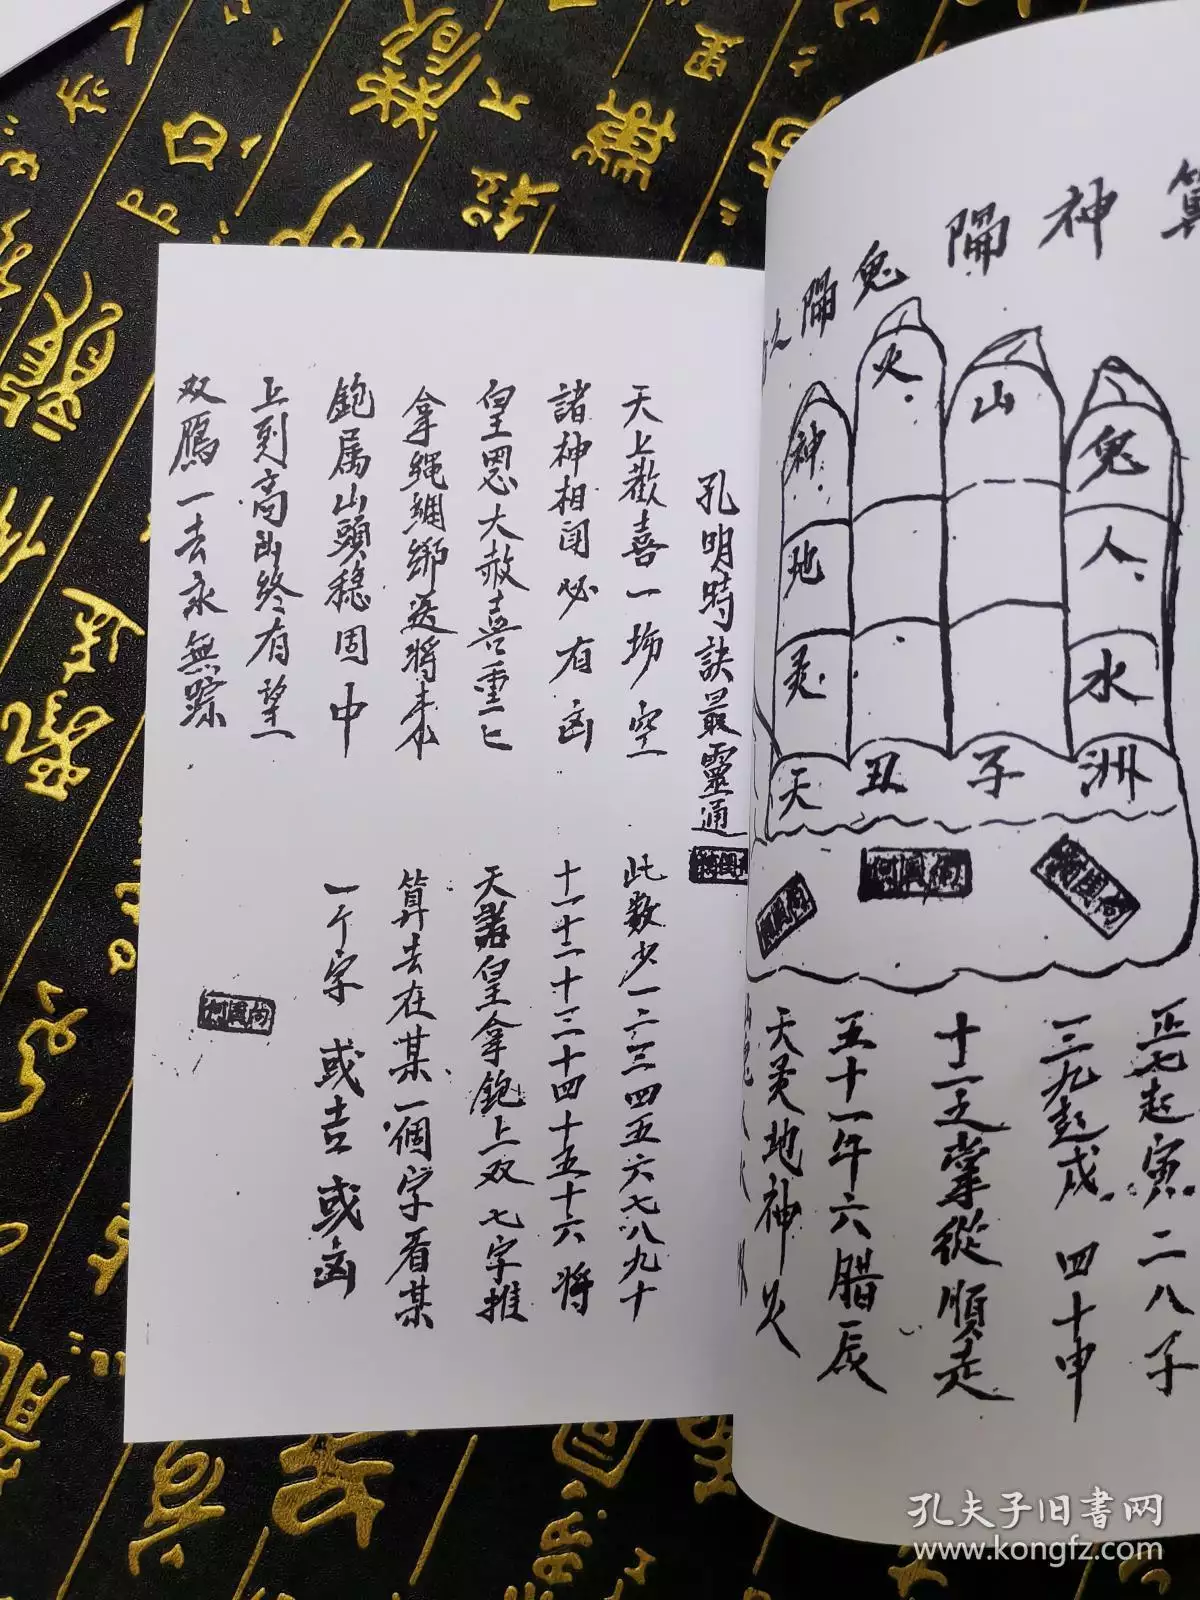 神鬧
鬼鬧
鬼
人
水
洲
山
子
火
丑
神
地
灵
天
正七起寅二八子
三九起戌 四十申
十二之掌從順走
五十一午六腊辰
天灵地神火
孔明時訣最靈通
天上歡喜一場空
諸神相闹必有凶
皇恩大赦喜重匕
拿绳綑绑送將来
鉋属山頭稳固中
上到高山終有望
双鴈一去永無踪
此数少一二三四五六七八九十
十一十二十三十四十五十六將
天諸皇拿鉋上双七字推
算去在某一個字看某
一个字 或吉或凶
孔夫子旧书网
www.kongfz.com